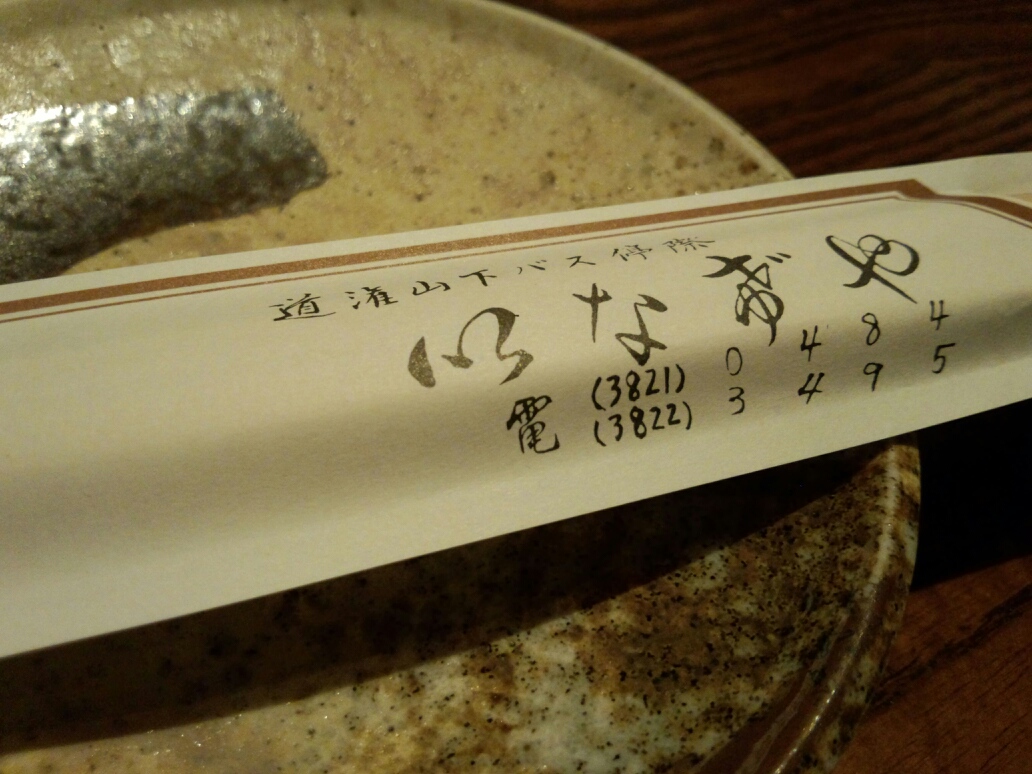 道灌山下バス停際
いなぎや
電 (3821) 0484
(3822) 3495